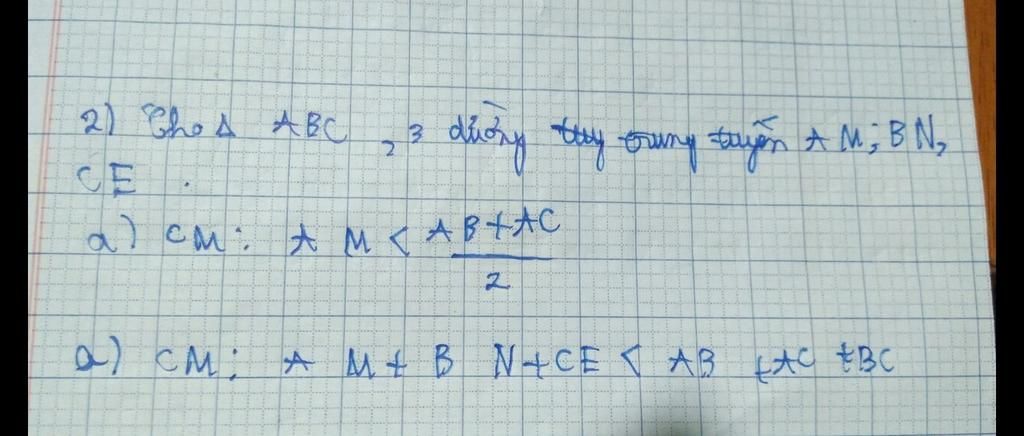 2) Cho Δ ABC, 3 đường trung tuyến AM; BN,
CE.
a) CM: AM < \frac{AB+AC}{2}
a) CM: AM + BN + CE < AB + AC + BC